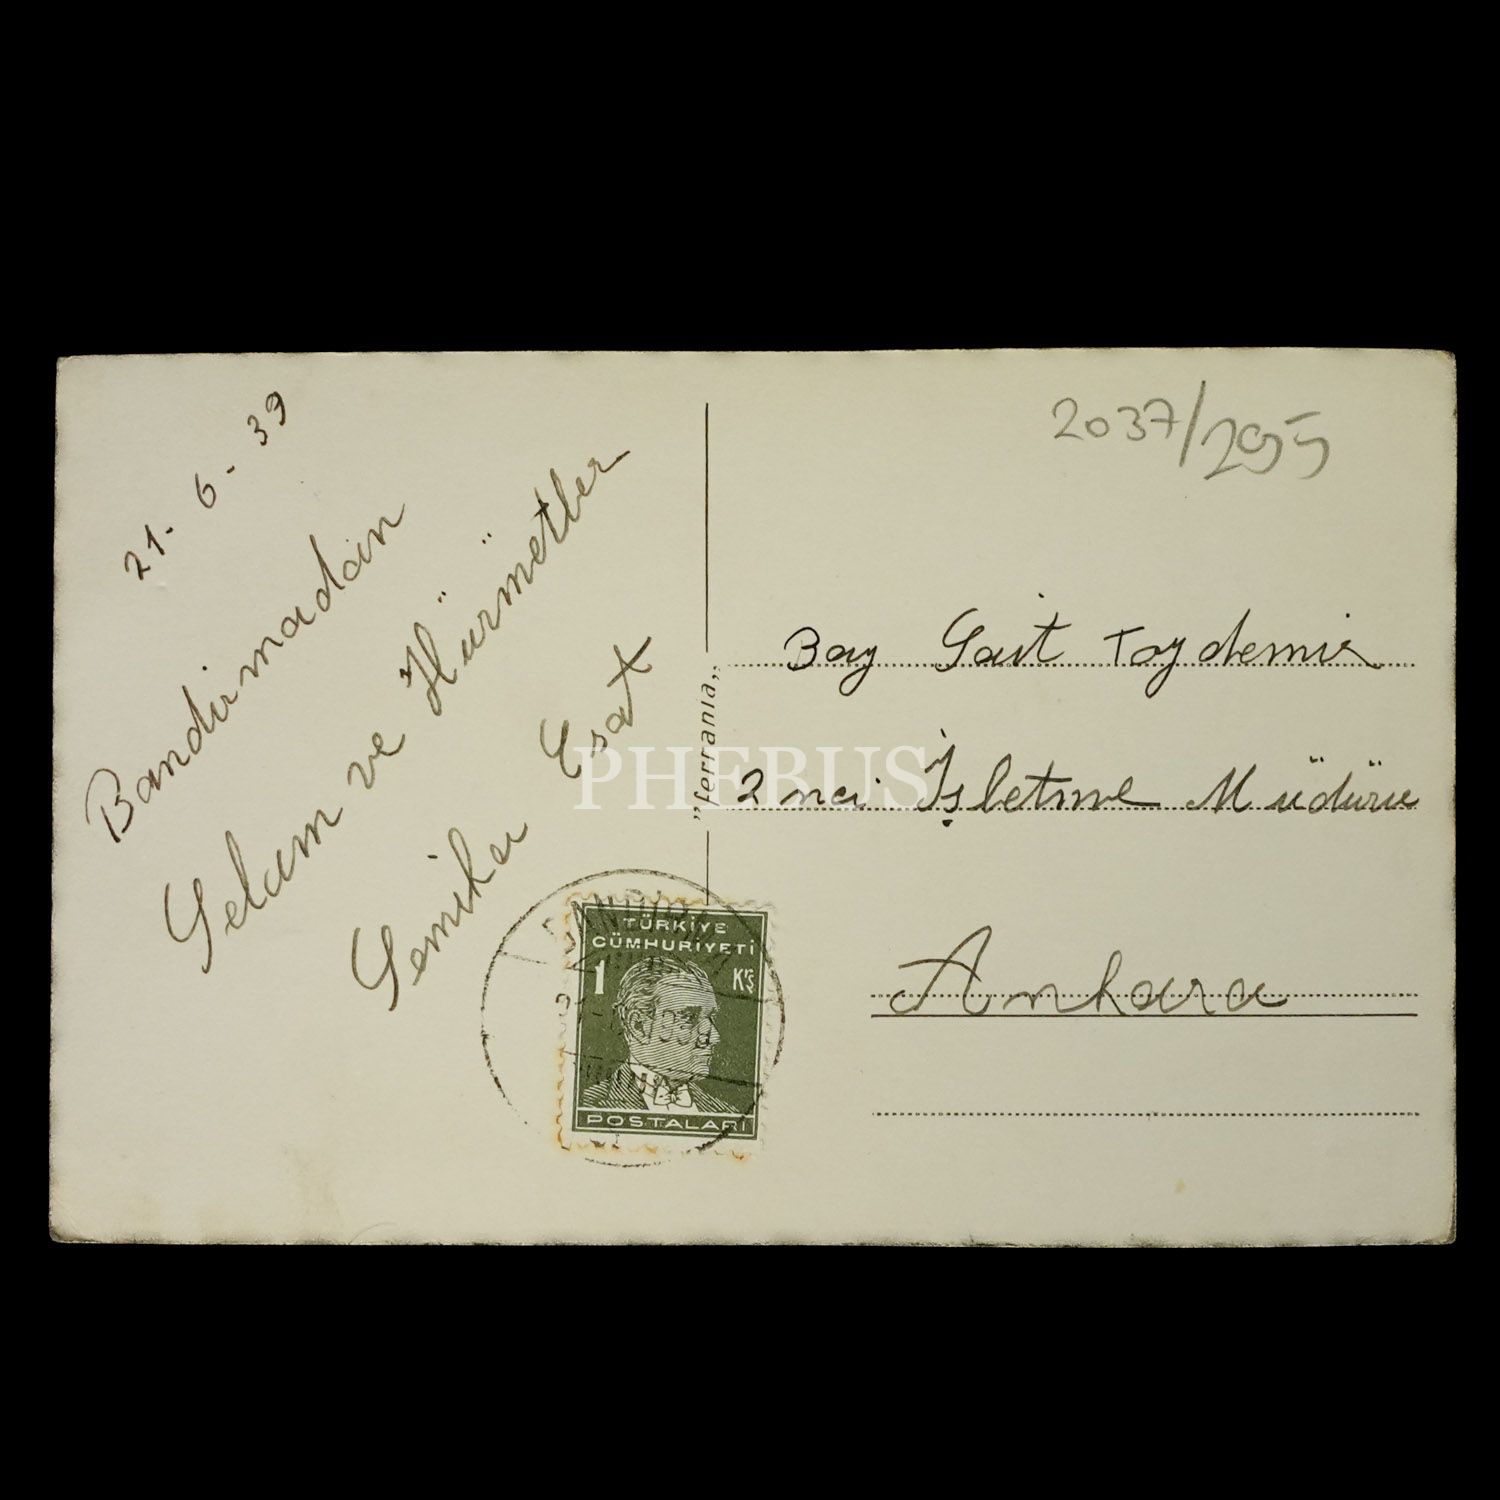 21-6-39
Bandirmadan
Selam ve Hürmetler
Semiha Esat
„ferrania„
2037/295
Bay Sait Taydemir
2 nci İşletme Müdürü
Ankara
TÜRKİYE
CÜMHURİYETİ
1 Krş
POSTALARI
PHEBUS